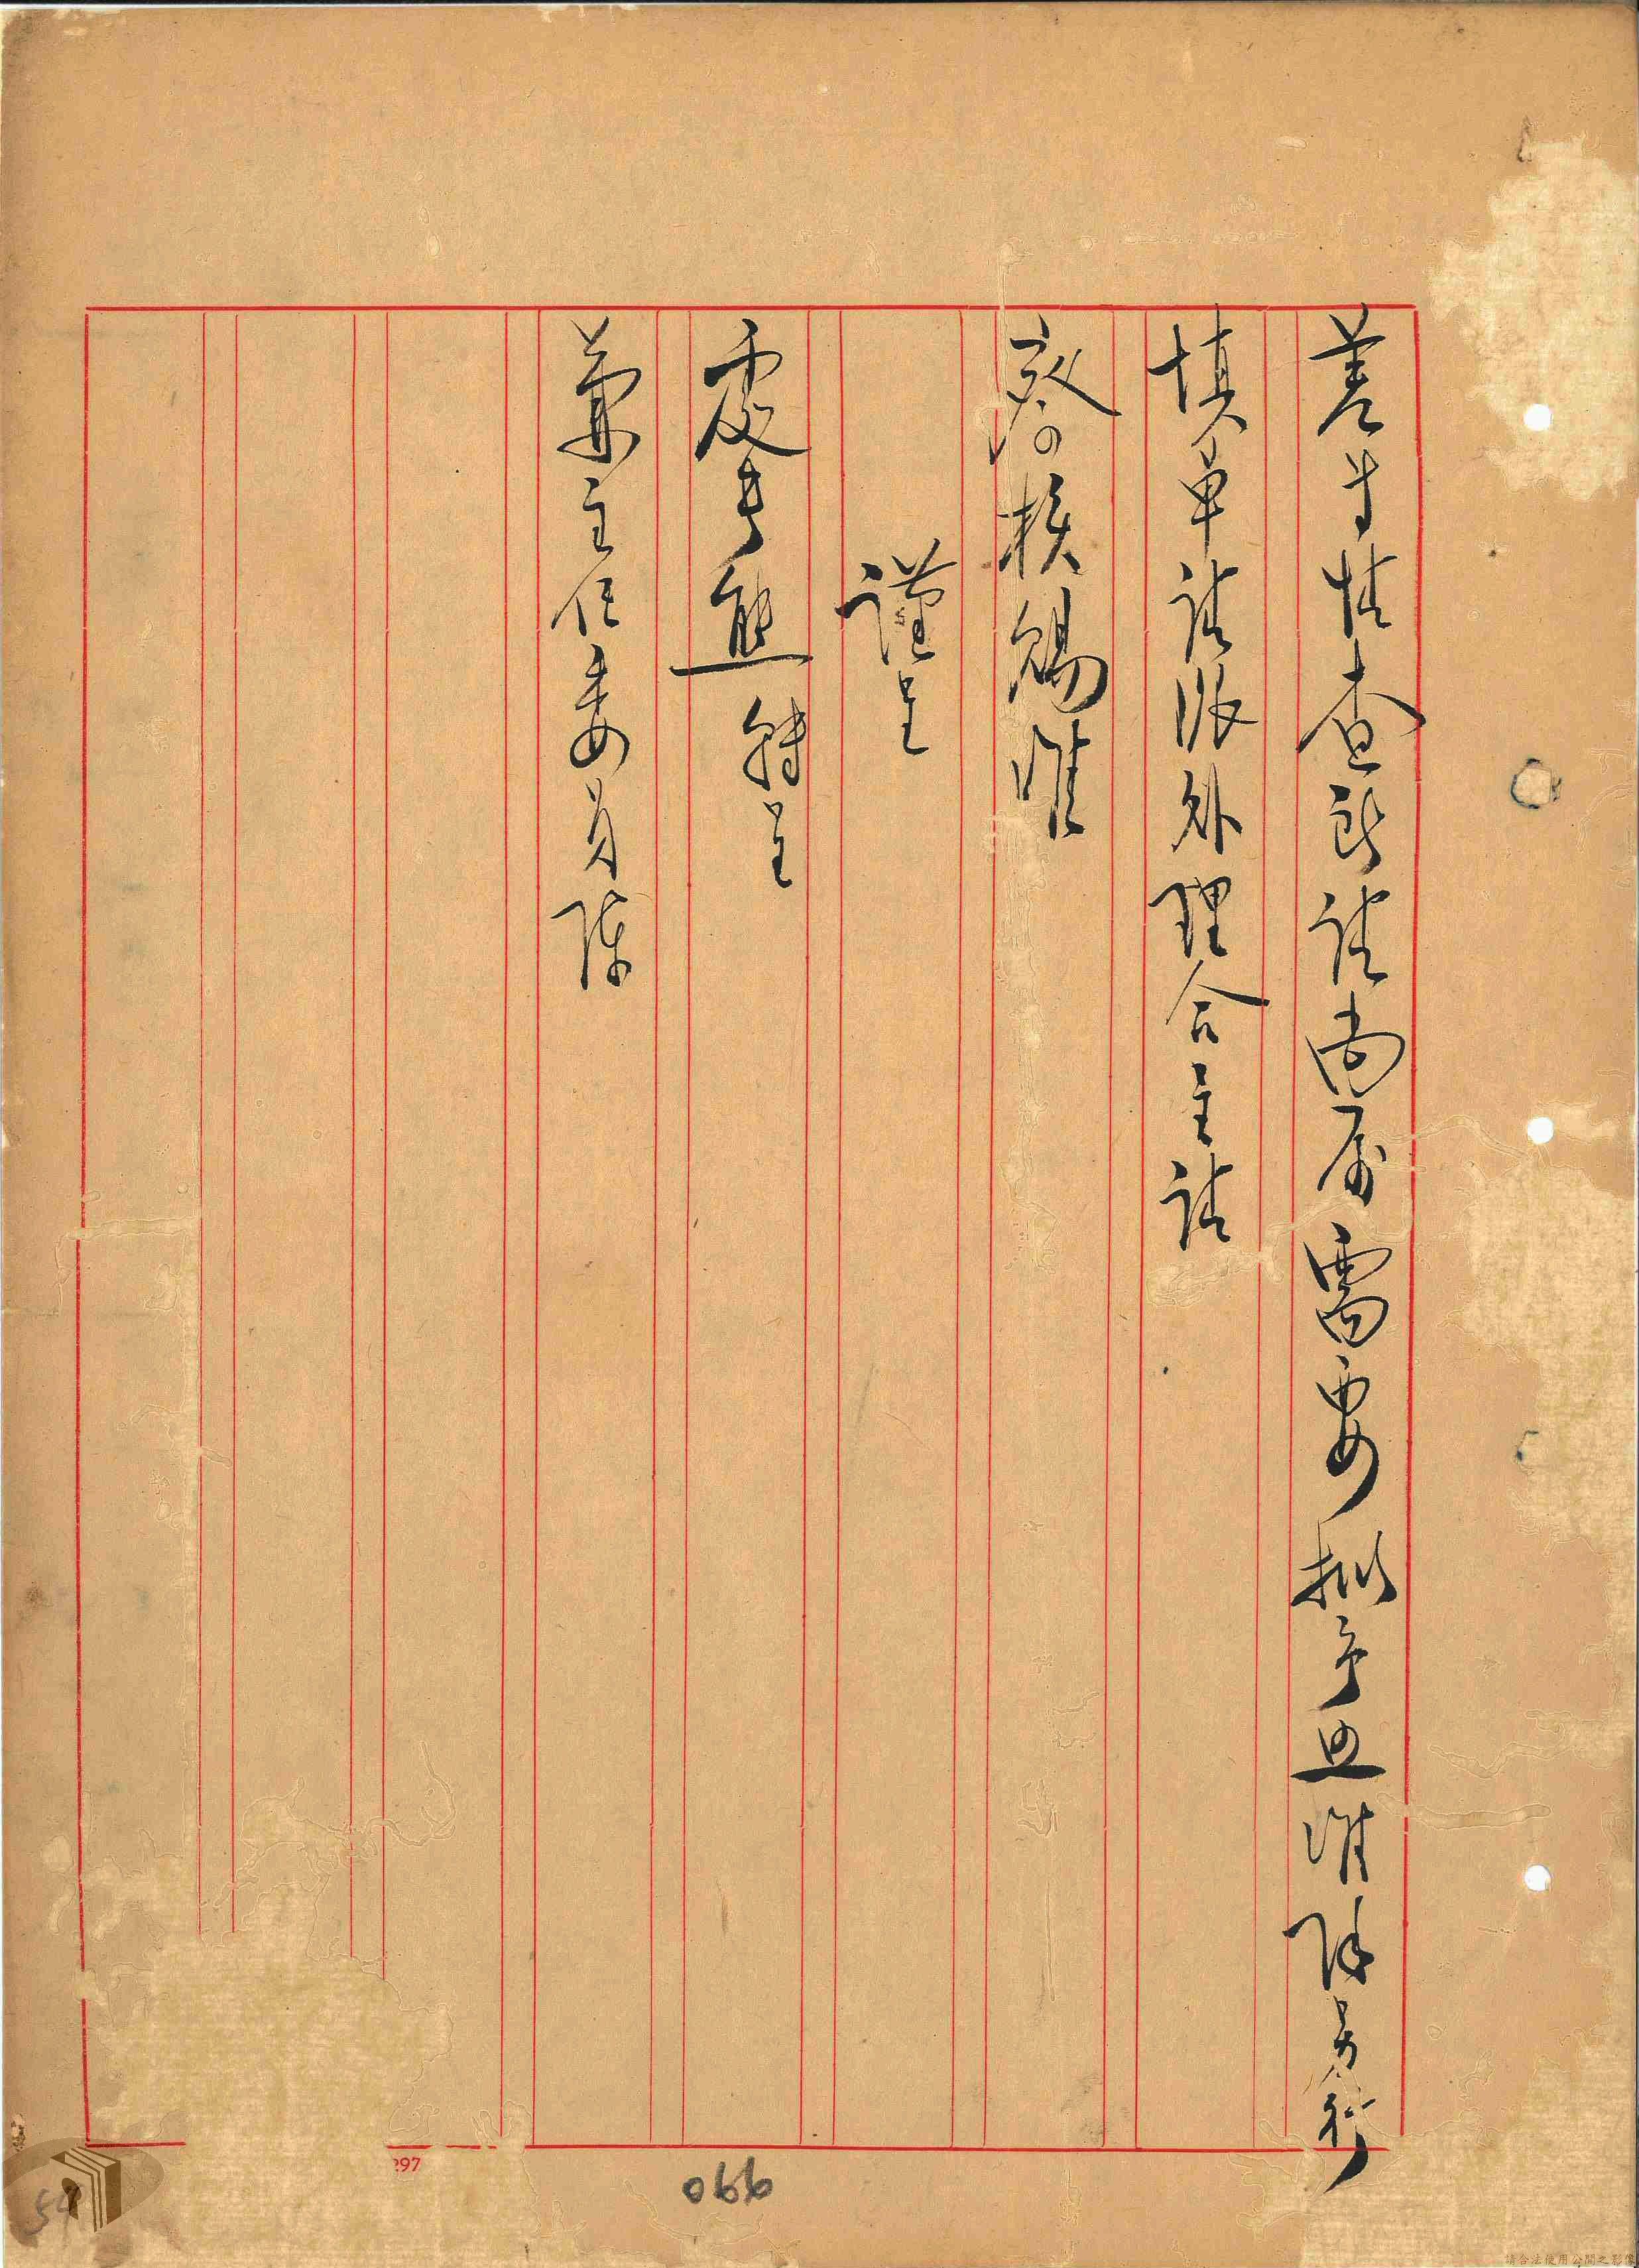 差等情查所請尚屬需要擬予照准除另行
填單請派外理合呈請
察核賜准
謹呈
處長熊 轉呈
兼主任委員陳
297
066
54
請合法使用公開之影像